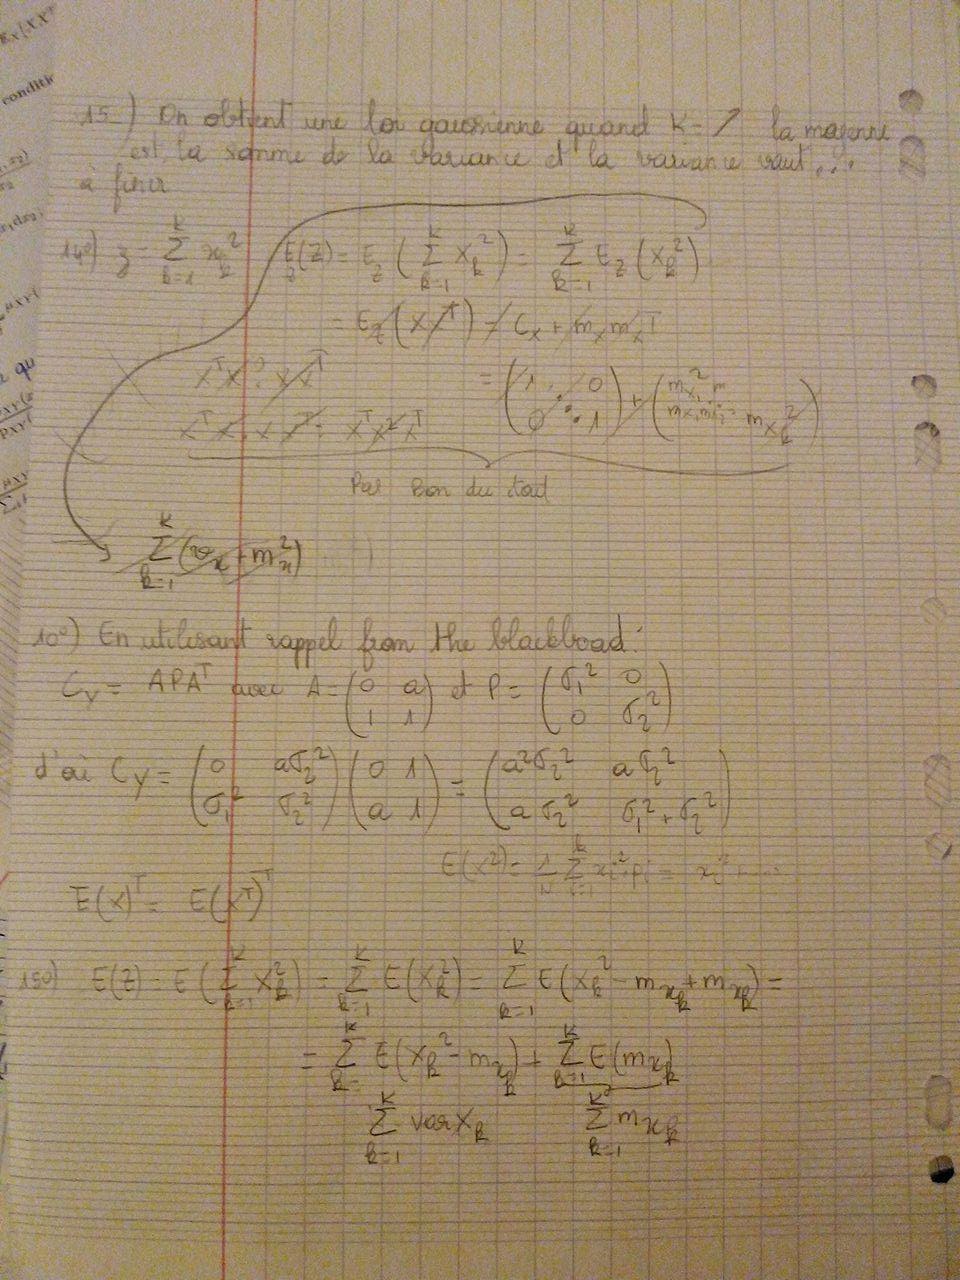 E_X[XX^T
conditio
15°) On obtient une loi gaussienne quand K = ↗ la moyenne
est la somme de la variance et la variance vaut...
à finir
14°) z = \sum_{k=1}^{K} x_k^2 E_z(Z) = E_z(\sum_{k=1}^{K} X_k^2) = \sum_{k=1}^{K} E_z(X_k^2)
= E_z(XX^T) = C_x + m_x m_x^T
X^T X ? XX^T
= (1 . 0 0 . 1) + (m_{x_1}^2 m_{x_k}^2)
Pas Bon du tout
\sum_{k=1}^{K} (v_x + m_x^2)
10°) En utilisant rappel from the blackboad:
C_Y = APA^T avec A = (0 a 1 1) et P = (σ_1^2 0 0 σ_2^2)
d'où C_Y = (0 aσ_2^2 σ_1^2 σ_2^2) (0 1 a 1) = (a^2σ_2^2 aσ_2^2 aσ_2^2 σ_1^2 + σ_2^2)
E(X^2) = \frac{1}{N} \sum_{i=1}^{K} x_i^2 . p_i =
E(X)^T = E(X^T)
150) E(Z) = E(\sum_{k=1}^{K} X_k^2) = \sum_{k=1}^{K} E(X_k^2) = \sum_{k=1}^{K} E(X_k^2 - m_{x_k} + m_{x_k}) =
= \sum_{k=}^{K} E(X_k^2 - m_{x_k}) + \sum_{k=1}^{K} E(m_{x_k})
\sum_{k=1}^{K} var X_k \sum_{k=1}^{K} m_{x_k}